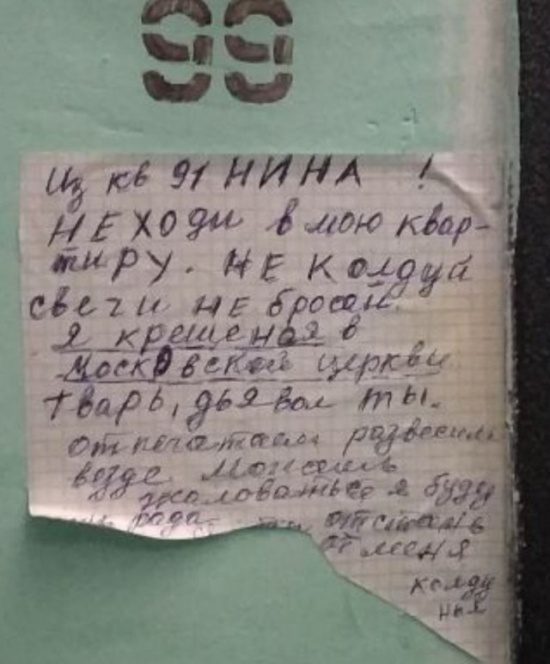 99
Из кв 91 НИНА !
НЕ ХОди в мою квар-
тиРУ. НЕ КОлдуй
свечи НЕ бросай.
Я крещеная в
Московской церкви
тварь, дьявол ты.
отпечатаем развесим
везде можешь
жаловаться я буду
рада отстань
от меня
колду
нья